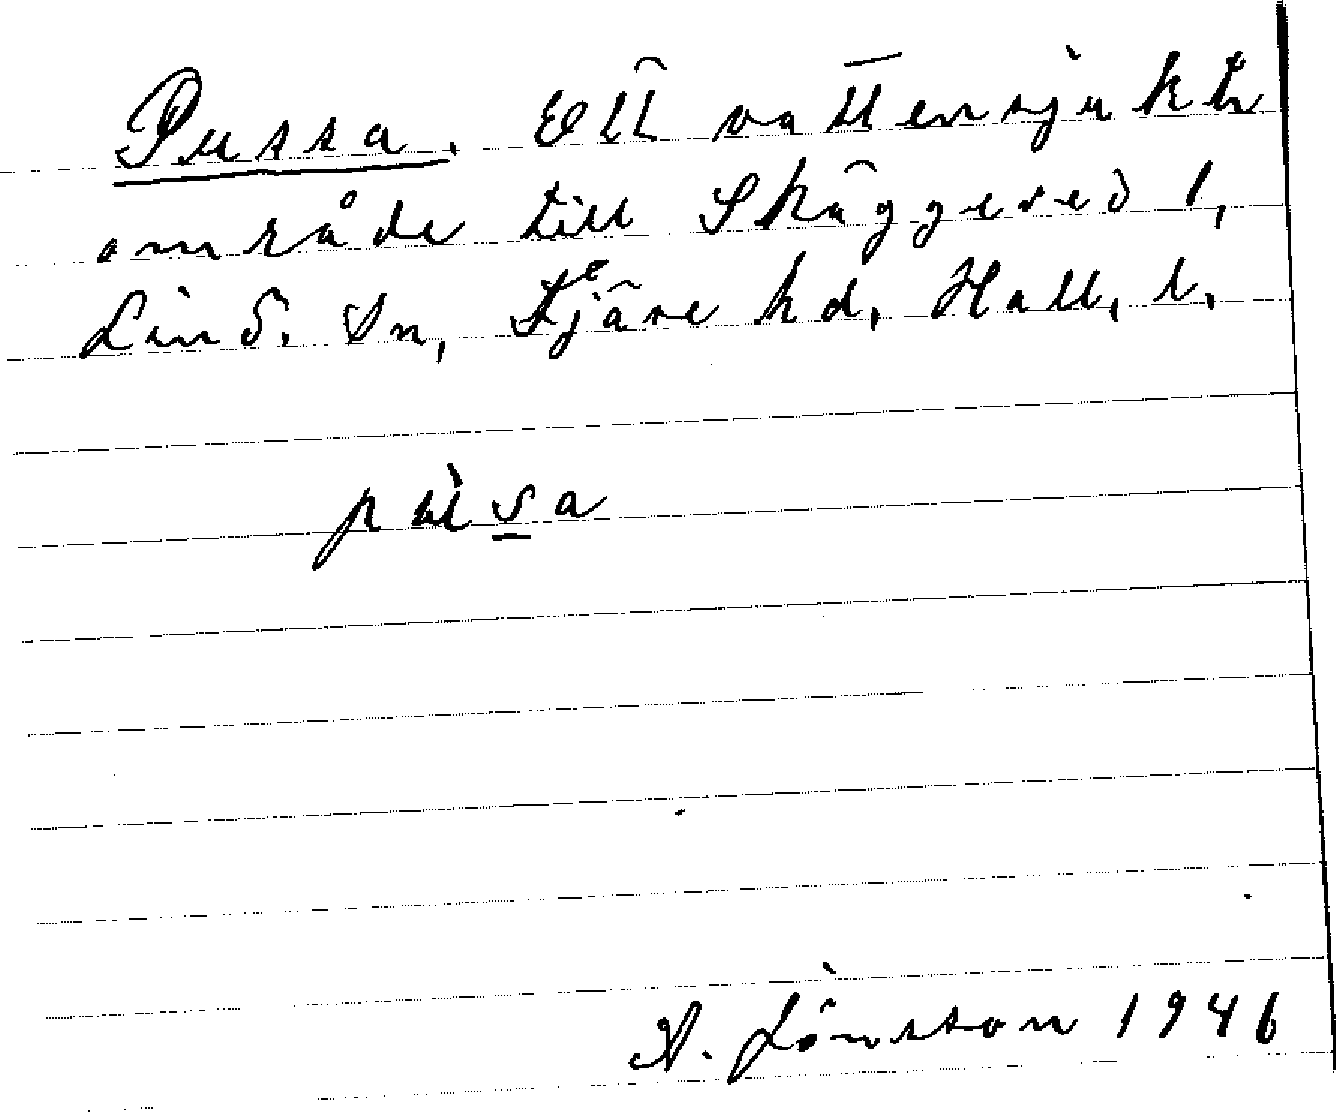 Pussa. Ett vattensjukt
område till Skäggered 1,
Lind. Sn, Fjäre hd, Hall. l.
pùsa
A. Jönsson 1946